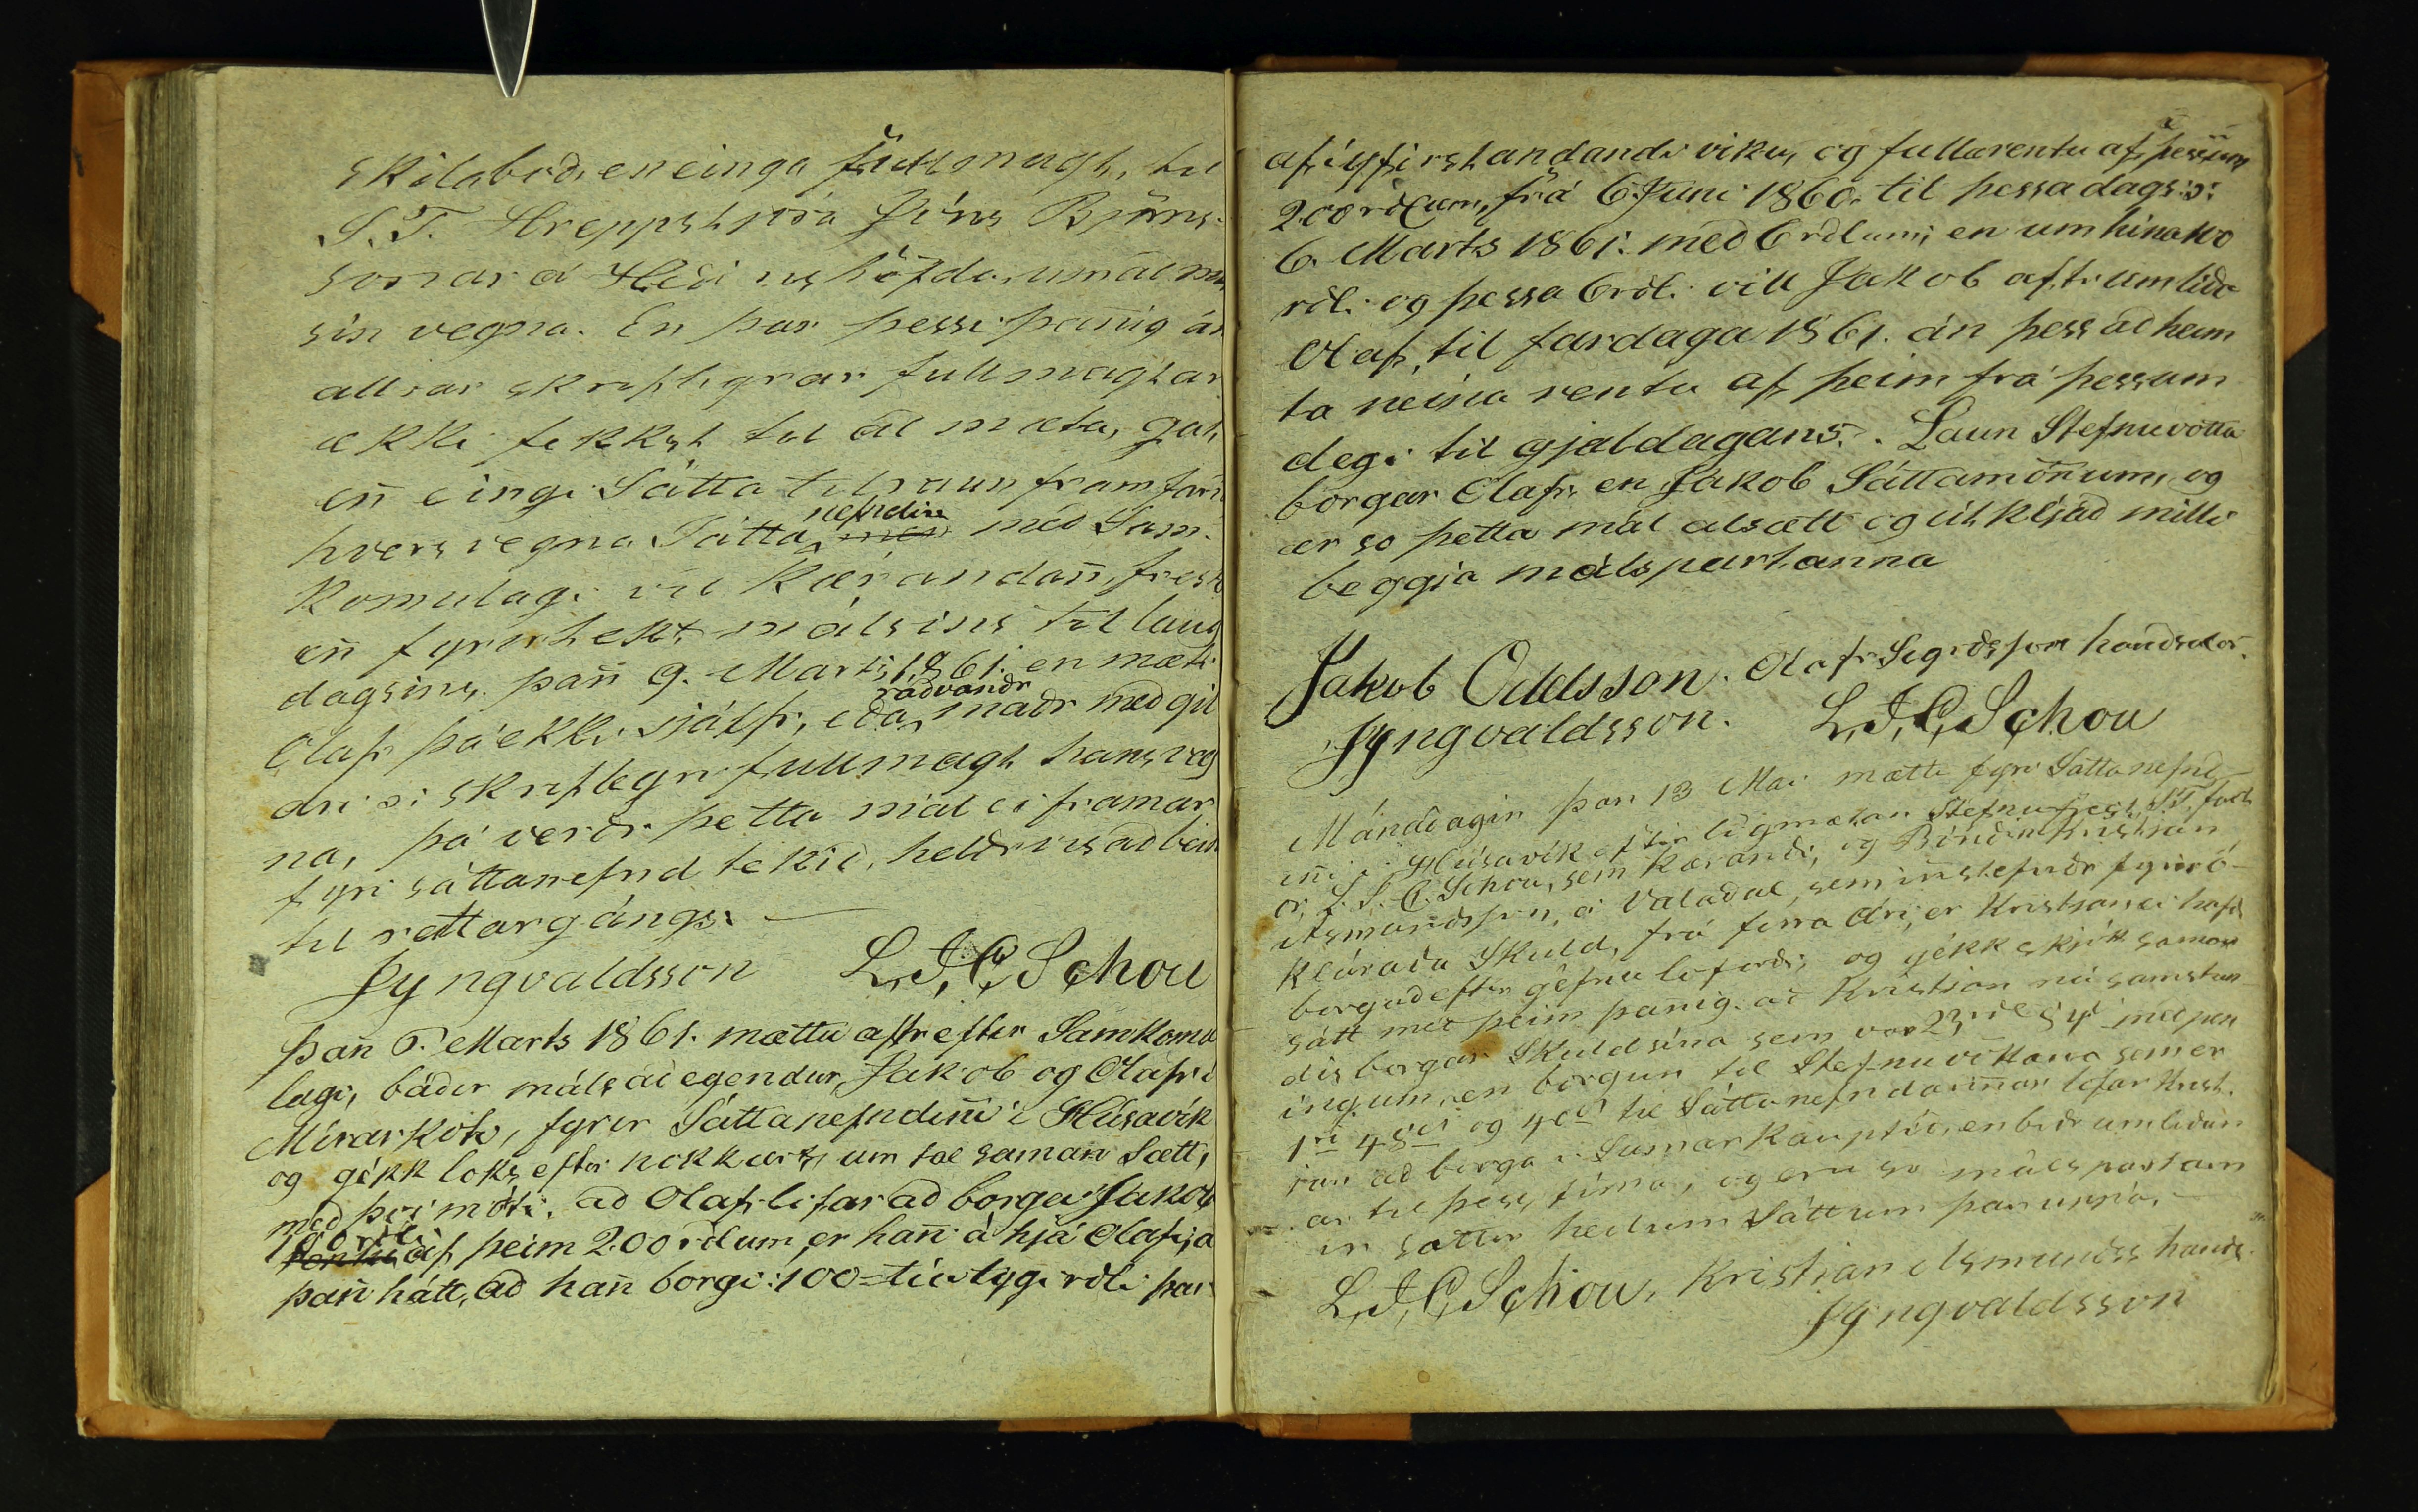 skilaboð, en einga fullmagt, til
S.T. Hreppstjóra Jóns Björns-
sonar á Héðinshöfða, um að mæta
sín vegna. En þar þessi þanig án
allrar skriflegrar fullmagtar
ekki fekkst til að mæta, gat
en eingi Sátta tilraun framfari
hvers vegna Sátta nefndin með Sam-
komulagi við Kærandan, frest
en fyrirtekt málsins til laug
dagsins þan̄ 9. Marts 1861. en mæti
Olafr þá ekki sjálfr, eða ráðvandr maðr með gil
dri skriflegri fullmagt hans veg
na, þá verðr þetta mál ei framar
fyri sáttanefnd tekið, heldr vísað bein
til rettargángs.
JYngvaldsson L,J,C,Schou
Þan̄ 6. Marts 1861. mættu aftr eftir Samkomu
lagi, báðir málsaðegendur Jakob og Olafr í
Mirarkoti, fyrir Sáttanefndin̄i í Húsavík
og gékk loks eftir nokkurt um tal saman Sætt,
með því móti, að Olafr lofar að borga Jakob
100 rdl. af þeim 200 rdlum er han̄ á hjá Olafi, á
þan̄ hátt, að han̄ borgi 100 = tíutygi rdli þar
af í yfirstandandi viku, og fulla rentu af þessum
200 rdlum, frá 6. Juni 1860. til þessa dags ɔ:
6. Marts 1861. með 6 rdlum, en um hina 100
rdl. og þessa 6 rdl. vill Jakob aftr umlíða
Olaf, til fardaga 1861. án þess að heim
ta neina rentu af þeim frá þessum
degi til gjalddagans. Laun Stefnuvotta
borgar Olafr, en Jakob Sáttamön̄um, og
er so þetta mál alsætt og útkljáð milli
beggja málspartanna
Jakob Oddsson. Olafr Sigrðsson handsalar.
JYngvaldsson. L,J,C,Schou
Mánudagin þan 13 Mai mætti fyri Sáttanefnd-
in̄i í Húsavík eftir lögmætan Stefnufrest, S.T. fact
or, L. J. C. Schou, sem kærandi, og Bóndin Kristján
Asmundsson, á Valadal, sem in̄stefndr fyrir ó-
kláraða Skuld, frá firra ári, er Kristjan ei hafði
borgað eftir géfnu loforði, og gékk skjótt saman
sátt með þeim þan̄ig, að Kristján nú samstun-
dis borgar Skuld sína sem var 23 rd 5 sk með pen
íngum, en borgun til Stefnuvottana sem er
1 rd 48 sk og 40 sk til Sáttanefndarin̄ar lofar Krist-
ján að borga í Sumarkauptíð, en biðr umlíðun
ar til þess tíma, og eru so málspartarn
ir sáttir heilum Sáttum þar uppá.
L,J,C,Schou, Kristjan Asmundss hands.
JYngvaldsson